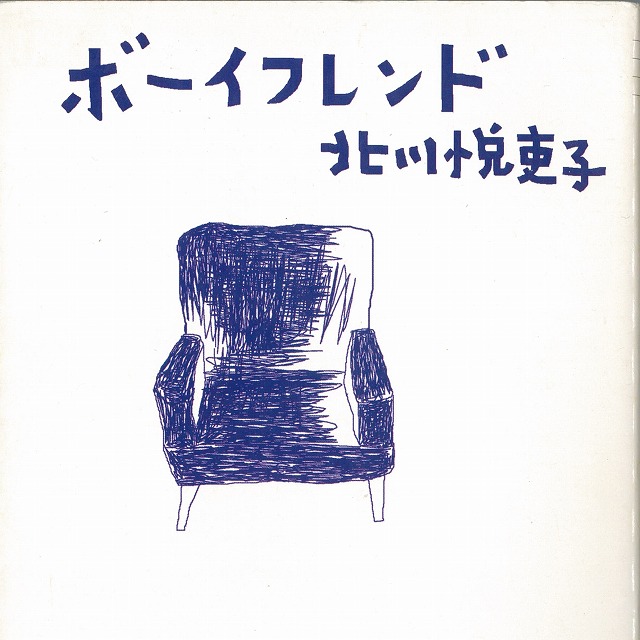 ボーイフレンド
北川悦吏子